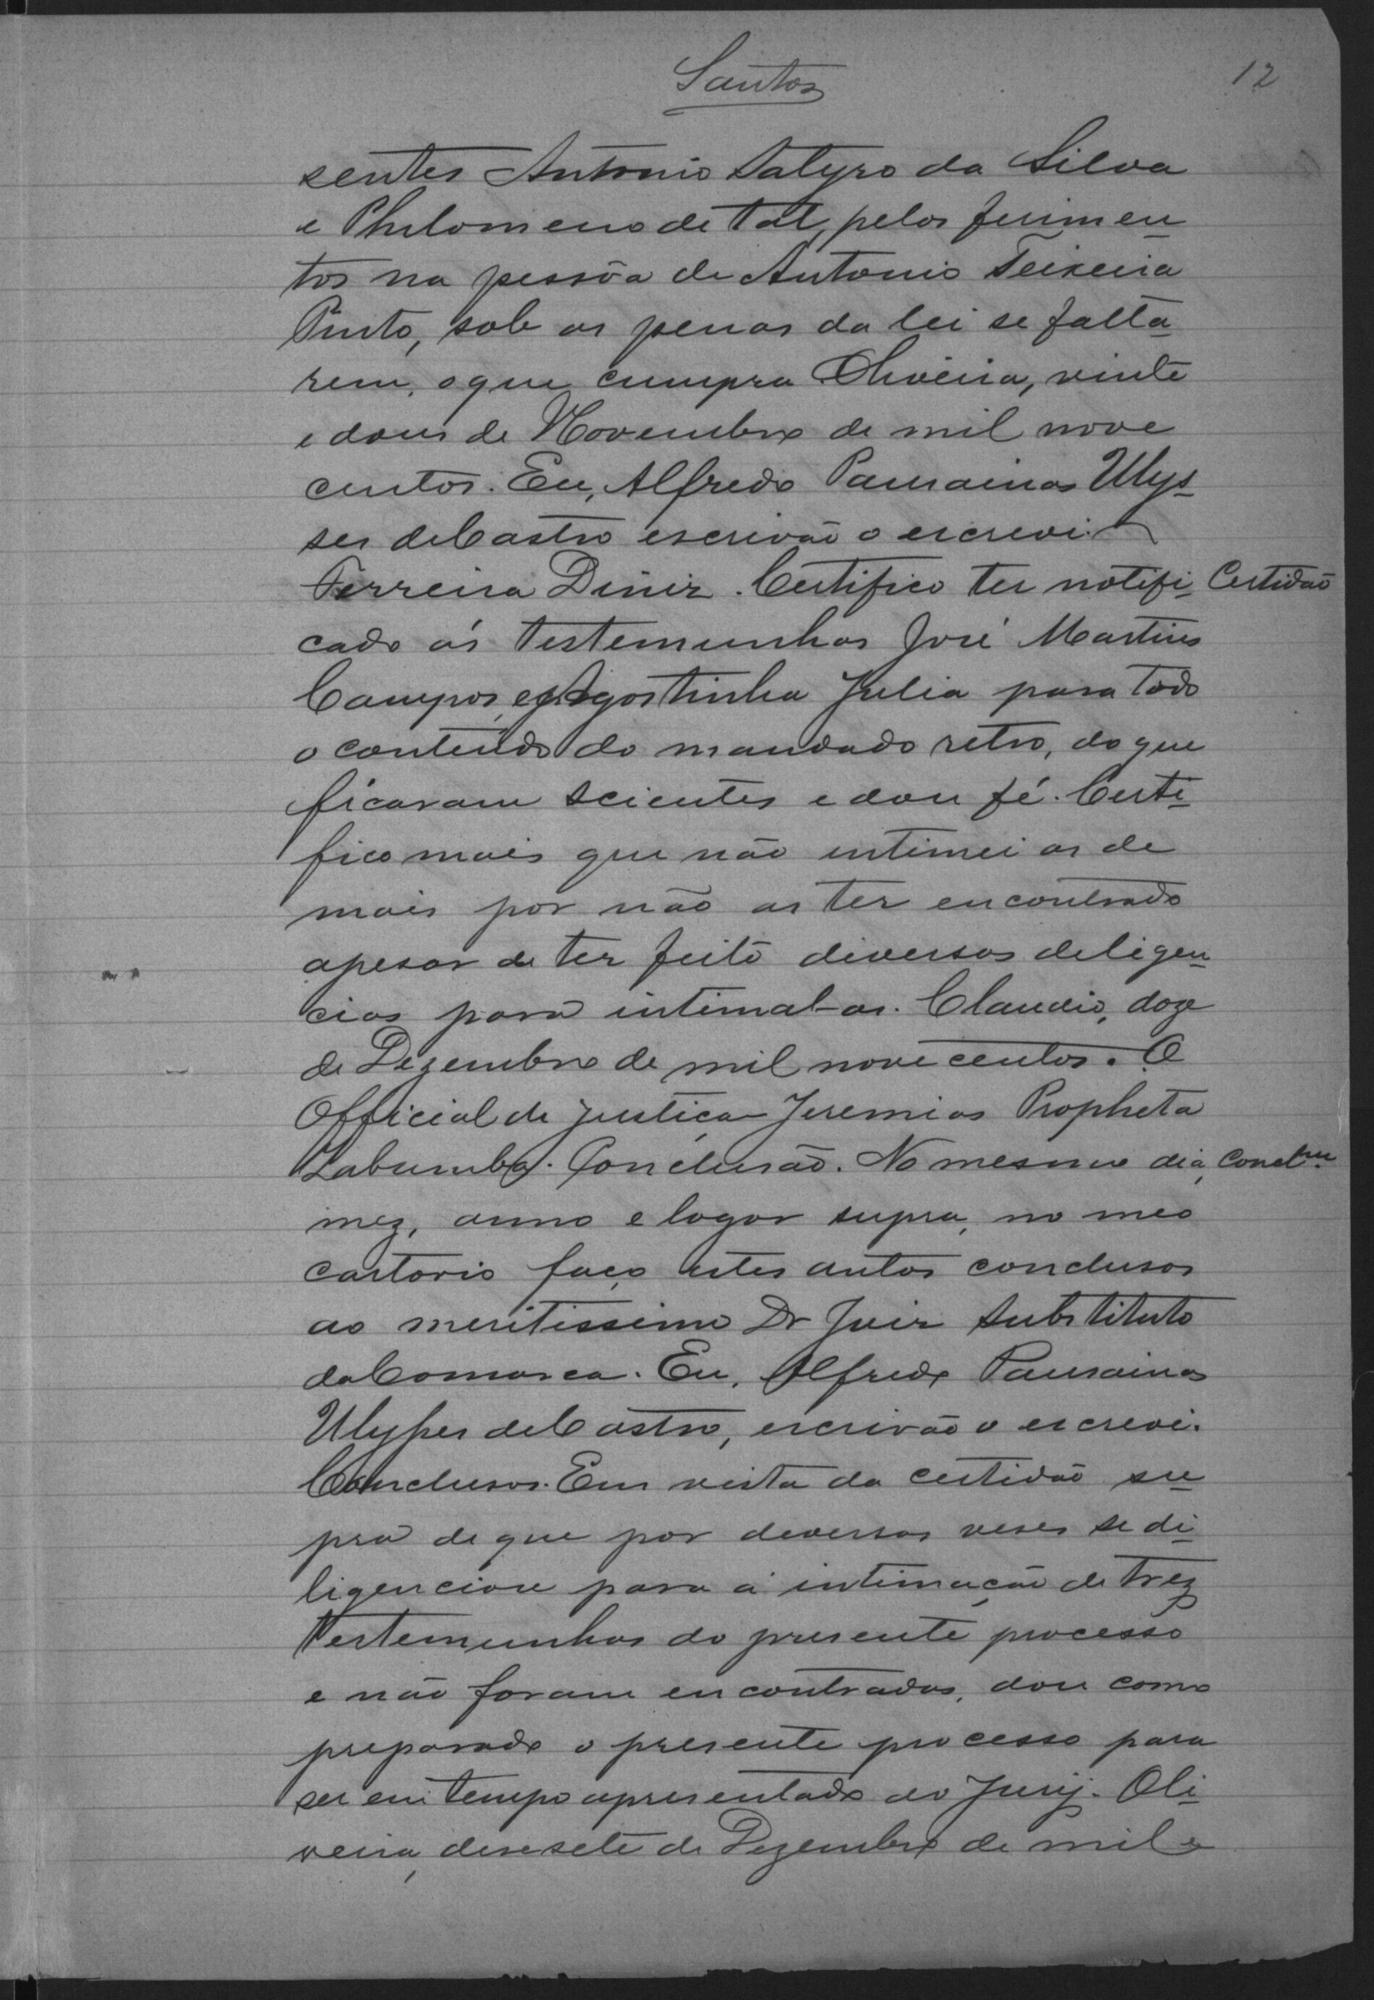 Santos
12
sentes Antonio Satyro da Silva
e Philomeno de tal, pelos ferimen
tos na pessôa de Antonio Teixeira
Pinto, sob as penas da lei se falta
rem, o que cumpra Oliveira, vinte
e dous de Novembro de mil nove
centos. Eu, Alfredo Pausainas Ulys
ses de Castro escrivão o escrevi.
Ferreira Diniz. Certifico ter notifi Certidão
cado ás testemunhas José Martins
Campos, e Agostinha Julia para todo
o conteúdo do mandado retro, do que
ficaram scientes e dou fé. Certi
fico mais que não intimei as de
mais por não as ter encontrado
apesar de ter feito diversas deligen
cias para intimal-as. Claudio, doze
de Dezembro de mil nove centos. O
Official de justiça Jeremias Propheta
Zabumba. Conclusão. No mesmo dia, Concl.
mez, anno e logar supra, no meo
cartorio faço estes autos conclusos
ao meritissimo Dr Juiz Substituto
da Comarca. Eu, Alfredo Pausainas
Ulysses de Castro, escrivão o escrevi.
Conclusos. Em vista da certidão su
pra de que por deversas veses se di
ligenciou para a intimação de trez
testemunhas do presente processo
e não foram encontradas, dou como
preparado o presente processo para
ser em tempo apresentado ao Jury. Oli
veira, desesete de Dezembro de mil e